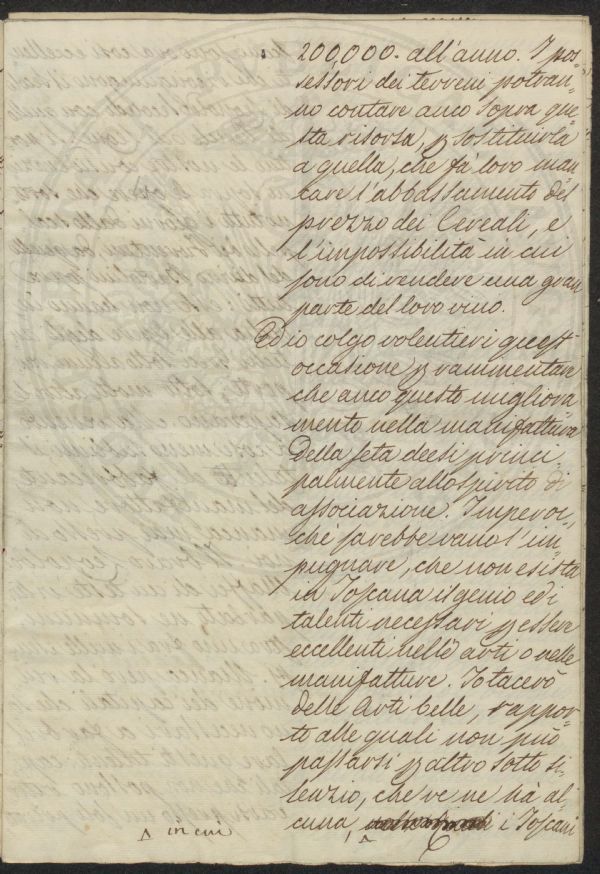 200,000. all'anno. I pos=
sessori dei terreni potran=
no contare anco sopra que=
sta risorsa, p sostituirla
a quella, che fà loro man=
care l'abbassamento del
prezzo dei Cereali, e
l'impossibilità in cui
sono di vendere una gran
parte del loro vino.
Ed io colgo volentieri quest'
occasione p rammentare
che anco questo migliora
mento nella manifattura
della seta deesi princi
palmente allo spirito di
associazione. Imperoc=
chè sarebbe vano l'im
pugnare, che non esista
in Toscana il genio ed i
talenti necessari p essere
eccellenti nelle arti o nelle
manifatture. Io tacerò
delle Arti belle, rappor=
to alle quali non può
passarsi p altro sotto si=
lenzio, che ve ne hà al=
cuna, i Toscani
^ in cui